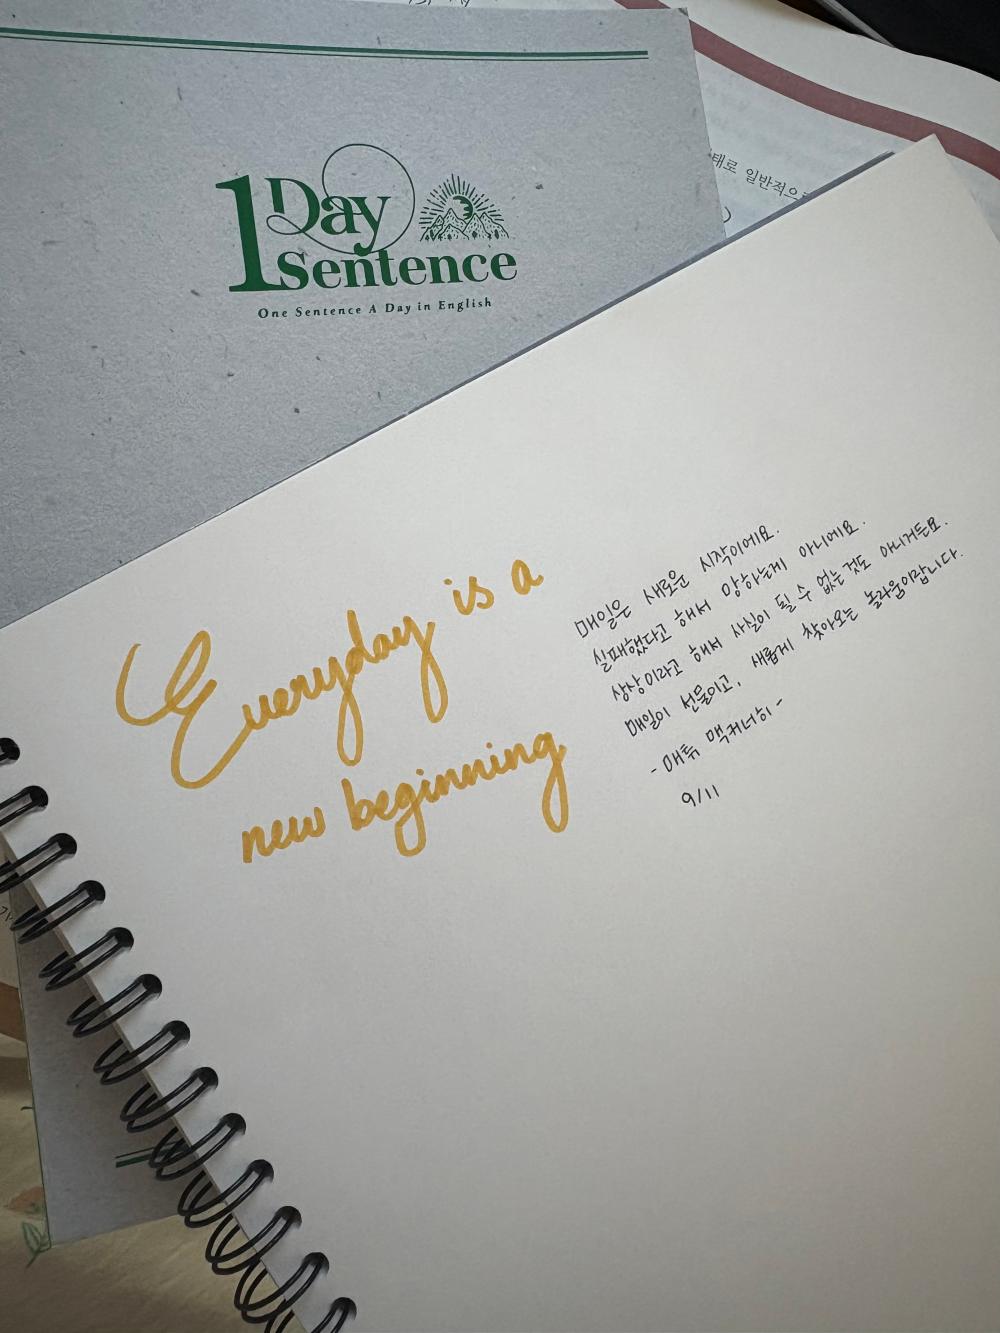 1 Day
Sentence
One Sentence A Day in English
태로 일반적으
Everyday is a
new beginning
매일은 새로운 시작이에요.
실패했다고 해서 망하는게 아니에요.
상상이라고 해서 사실이 될 수 없는것도 아니거든요.
매일이 선물이고, 새롭게 찾아오는 놀라움이랍니다.
- 매튜 맥커너히 -
9/11